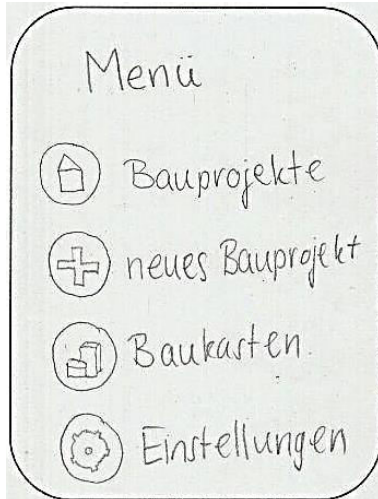 Menü
Bauprojekte
neues Bauprojekt
Baukasten
Einstellungen